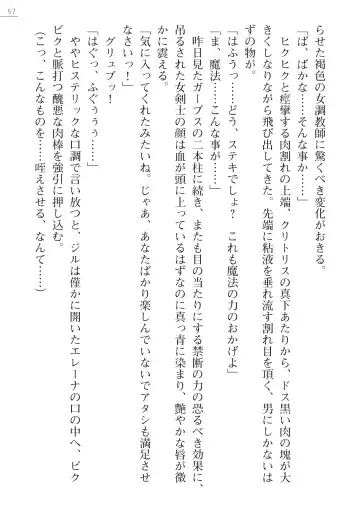 57
らせた褐色の女調教師に驚くべき変化がおきる。
「ば、ばかな……そんな事か……」
ヒクヒクと痙攣する肉割れの上端、クリトリスの真下あたりから、ドス黒い肉の塊が大
きくしなりながら飛び出してきた。先端に粘液を垂れ流す割れ目を頂く、男にしかないは
ずの物が。
「はふうっ……どう、ステキでしょ？　これも魔法の力のおかげよ」
「ま、魔法……こんな事が……」
昨日見たガーブスの二本柱に続き、またも目の当たりにする禁断の力の恐るべき効果に、
吊るされた女剣士の顔は血が頭に上っているはずなのに真っ青に染まり、艶やかな唇が微
かに震える。
「気に入ってくれたみたいね。じゃあ、あなたばかり楽しんでいないでアタシも満足させ
なさいっ！」
グリュプっ！
「はぐっ、ふぐぅぅぅ……」
ややヒステリックな口調で言い放つと、ジルは僅かに開いたエレーナの口の中へ、ビク
ビクと脈打つ醜悪な肉棒を強引に押し込む。
（こっ、こんなものを……咥えさせる、なんて……）